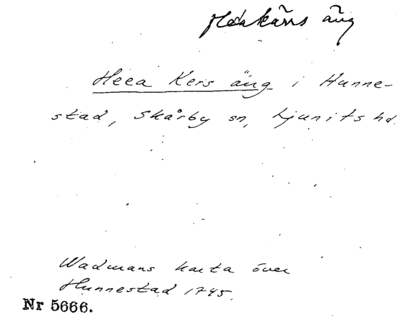 Heakärrs äng
Heea Kers äng i Hunne-
stad, Skårby sn, Ljunits hd.
Wadmans karta över
Hunnestad 1745.
Nr 5666.